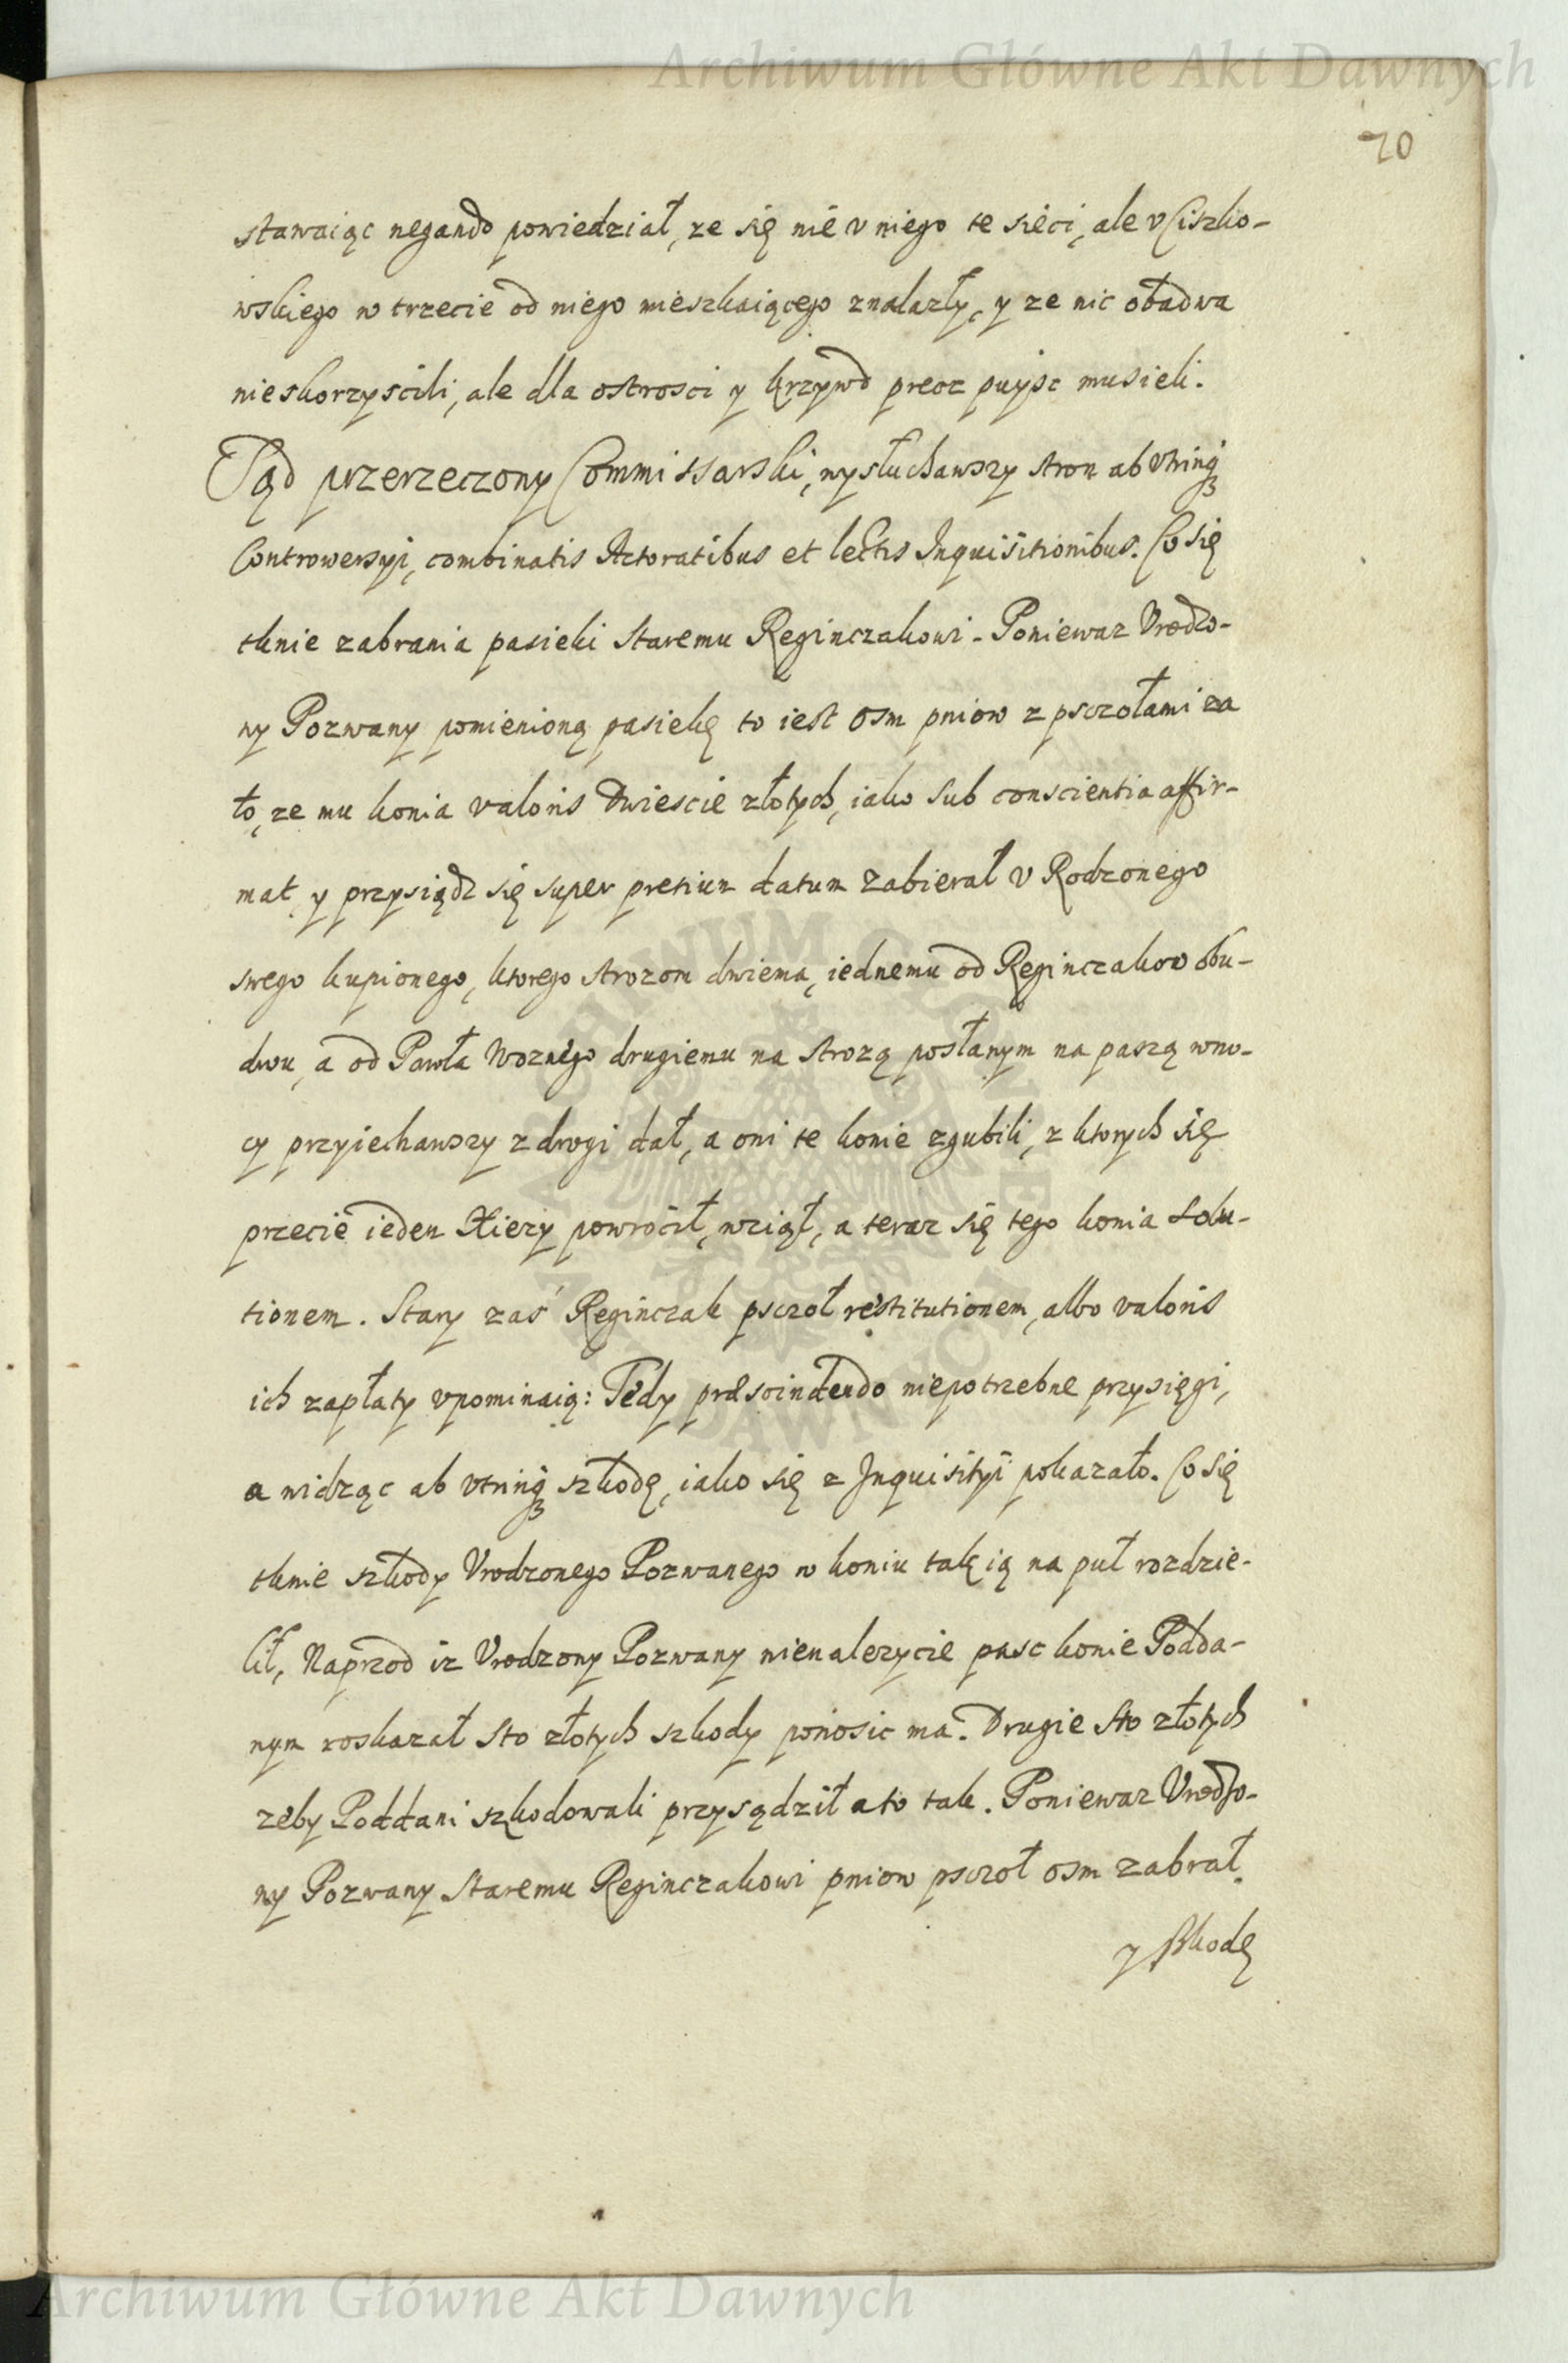 Archiwum Główne Akt Dawnych
70
stawaiąc negando powiedział, ze się nie v niego te sieci, ale v Ciszko-
wskiego w trzecie od niego mieszkaiącego znalazły, y ze nic obadwa
nieskorzyscili, ale dla ostrosci y krzywd precz puyść musieli.
Sąd przerzeczony Commissarski, wysłuchawszy stron ab vtrinq3
Controwersyi, combinatis Actoratibus et lectis Inquisitionibus. Co się
tknie zabrania pasieki Staremu Reginczakowi - Poniewaz Vrodzo-
ny Pozwany pomienioną pasiekę to iest osm pniow z pszczołami za
to, ze mu konia valoris Dwiescie złotych, iako sub conscientia affir-
mat y przysiądz się super pretium datum zabierał v Rodzonego
swego kupionego, ktorego strozom dwiema, iednemu od Reginczakow obu-
dwu, a od Pawła Woznego drugiemu na strozą posłanym na paszą w no-
cy przyiechawszy z drogi dał, a oni te konie zgubili, z ktorych się
przecie ieden Xiezy powrócił, wziął, a teraz się tego konia solu-
tionem. Stary zaś Reginczak pszczoł restitutionem, albo valoris
ich zapłaty vpominaią: Tedy præscindendo niepotrzebne przysięgi,
a widząc ab vtrinq3 szkodę, iako się z Inquisityi pokazało. Co się
tknie szkody Vrodzonego Pozwanego w koniu tak ią na puł rozdzie-
lił, Naprzod iz Vrodzony Pozwany nienalezycie pasc konie Podda-
nym roskazał Sto złotych szkody ponosic ma. Drugie Sto złotych
zeby Poddani szkodowali przysądził a to tak. Poniewaz Vrodzo-
ny Pozwany Staremu Reginczakowi pniow pszczoł osm zabrał.
y szkodę
ARCHIWUM GŁÓWNE AKT DAWNYCH
Archiwum Główne Akt Dawnych